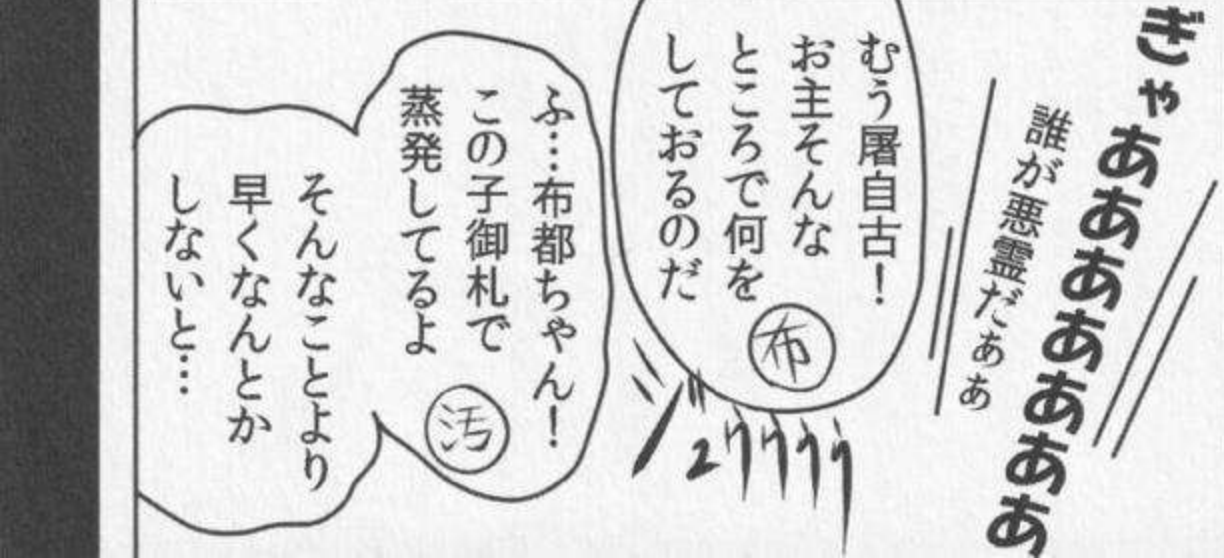 ぎゃああああああああ
誰が悪霊だぁぁ
むう屠自古！
お主そんな
ところで何を
しておるのだ
布
ふ…布都ちゃん！
この子御札で
蒸発してるよ
汚
そんなことより
早くなんとか
しないと…